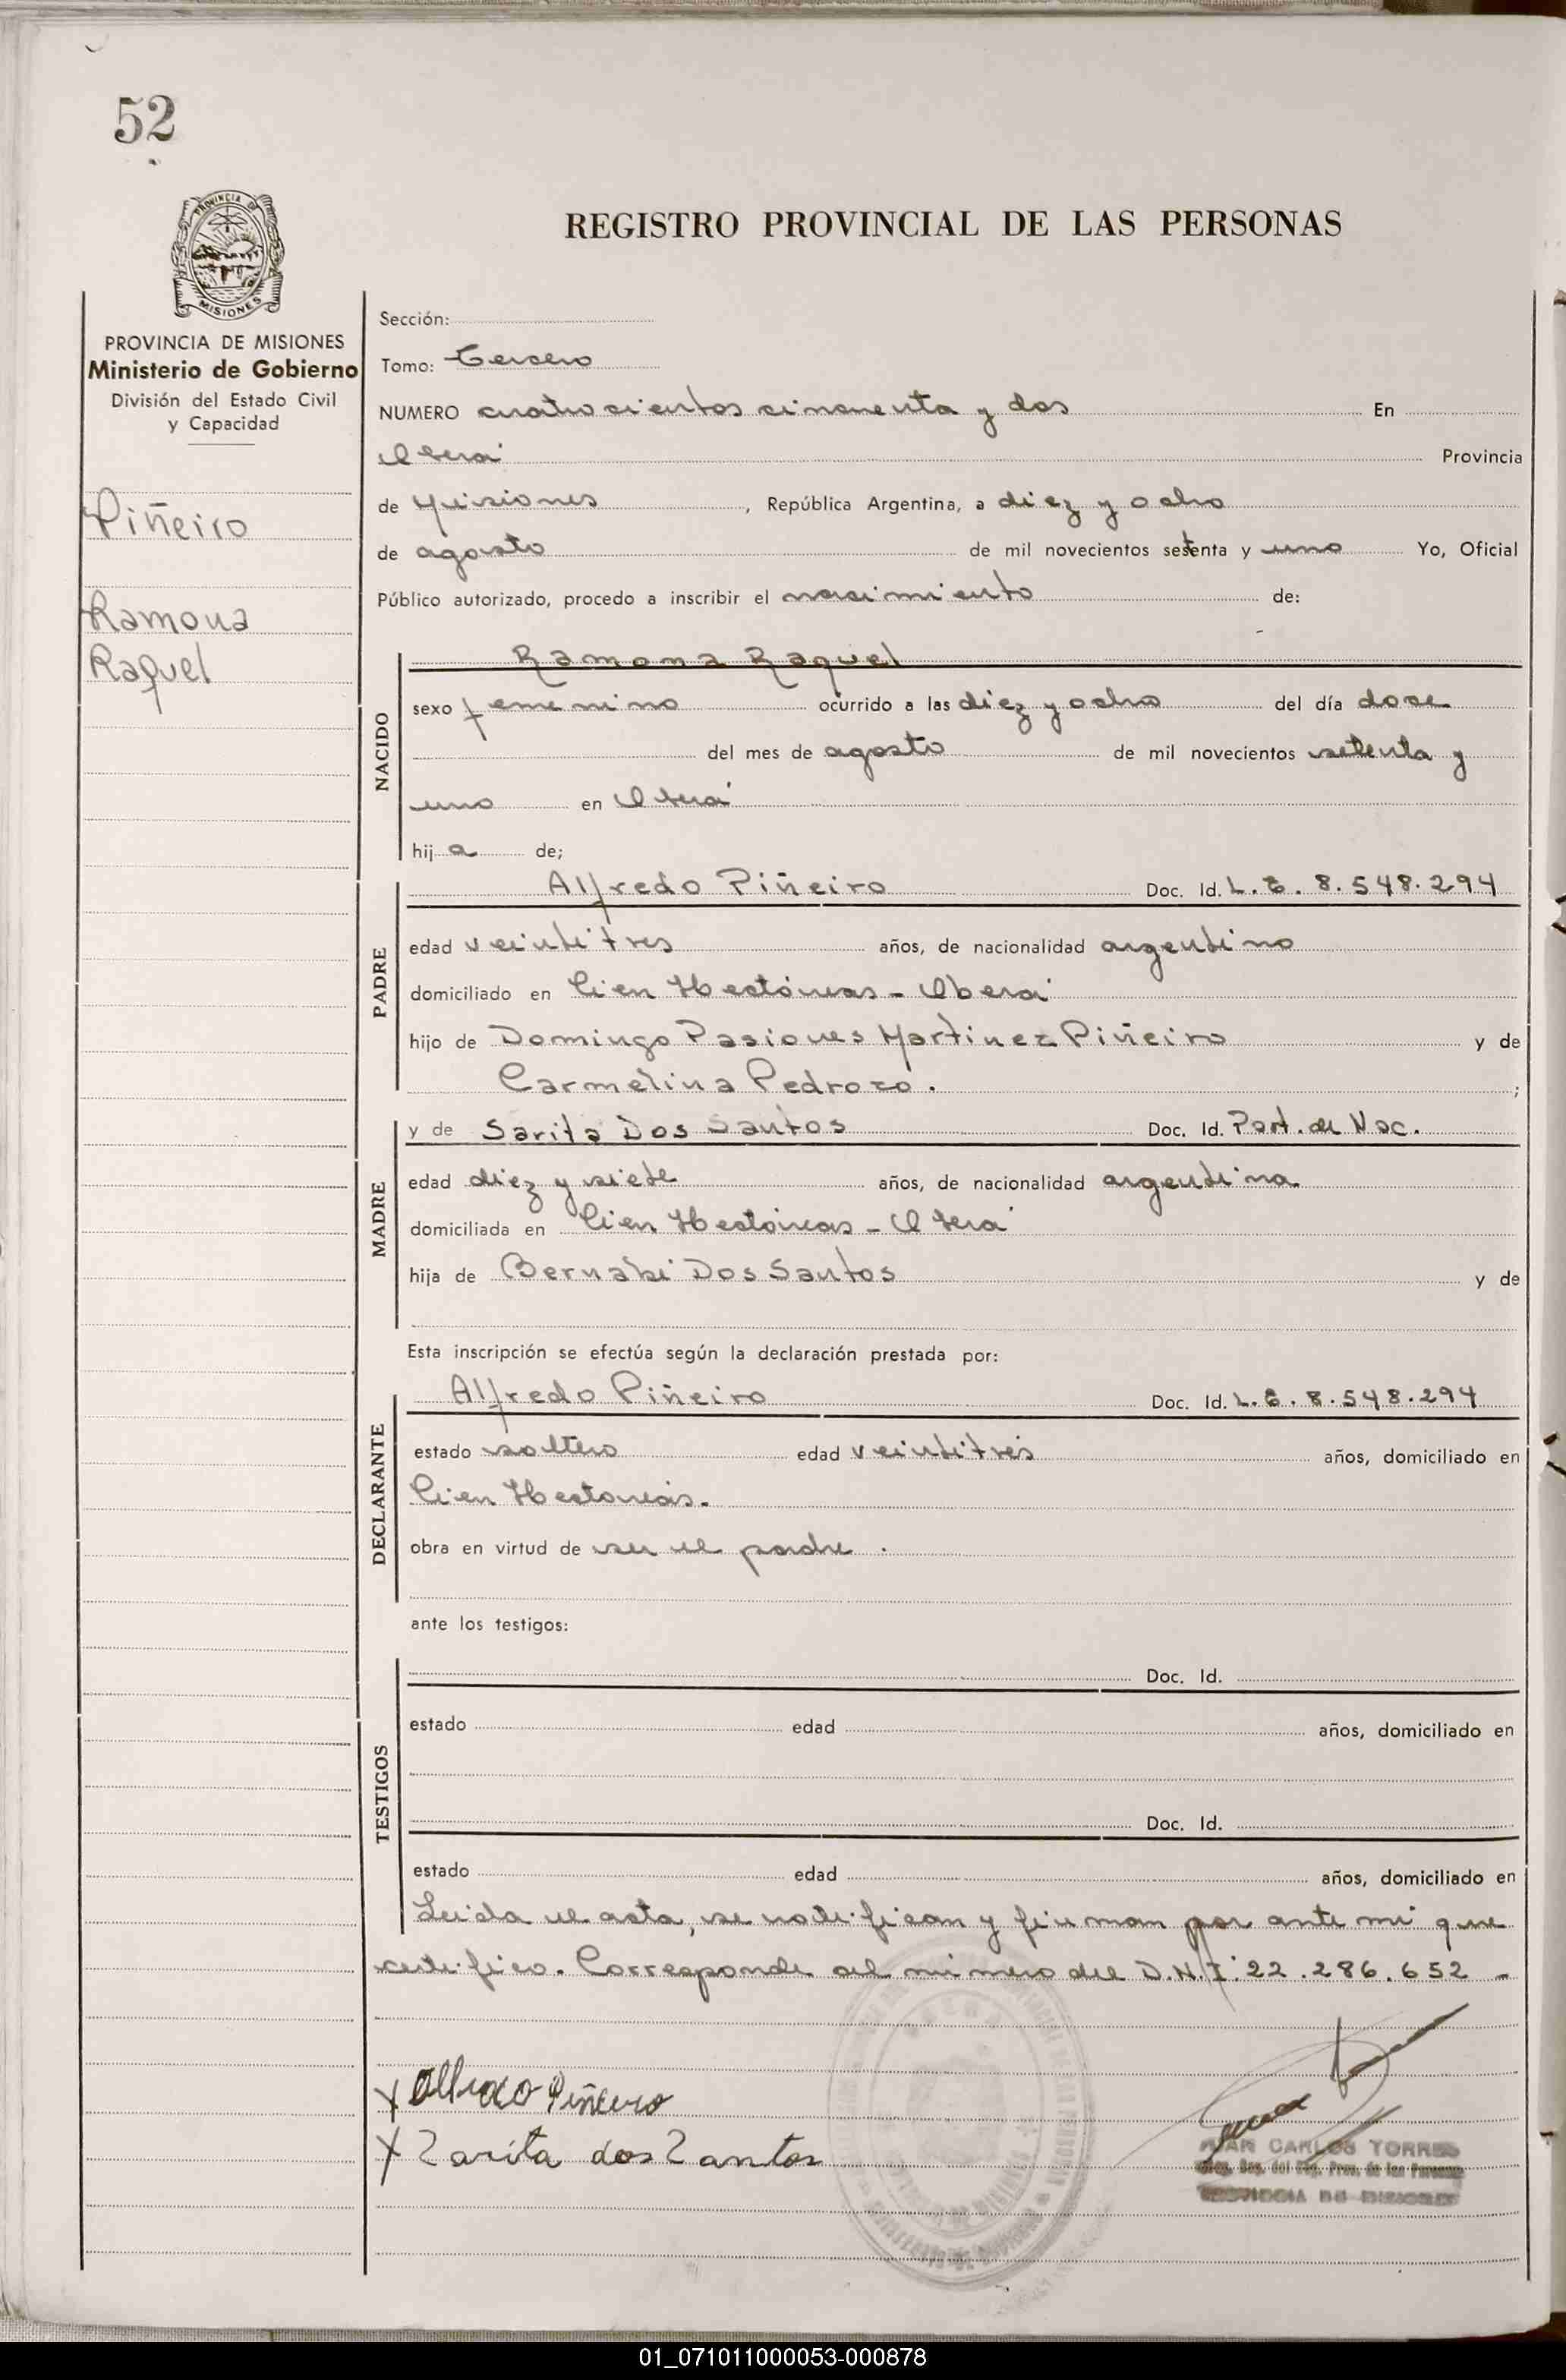 52
PROVINCIA DE
MISIONES
PROVINCIA DE MISIONES
Ministerio de Gobierno
División del Estado Civil
y Capacidad
Piñeiro
Ramona
Raquel
REGISTRO PROVINCIAL DE LAS PERSONAS
Sección:
Tomo: Tercero
NUMERO cuatrocientos cincuenta y dos En
Oberá Provincia
de Misiones, República Argentina, a diez y ocho
de agosto de mil novecientos setenta y uno Yo, Oficial
Público autorizado, procedo a inscribir el nacimiento de:
NACIDO
Ramona Raquel
sexo femenino ocurrido a las diez y ocho del día doce
del mes de agosto de mil novecientos setenta y
uno en Oberá
hija de;
PADRE
Alfredo Piñeiro Doc. Id. L.E. 8.548.294
edad veintitres años, de nacionalidad argentino
domiciliado en Cien Hectáreas - Oberá
hijo de Domingo Pasiones Martinez Piñeiro y de
Carmelina Pedrozo. ;
MADRE
y de Sarita Dos Santos Doc. Id. Part. de Nac.
edad diez y siete años, de nacionalidad argentina.
domiciliada en Cien Hectáreas - Oberá
hija de Bernabé Dos Santos y de
Esta inscripción se efectúa según la declaración prestada por:
DECLARANTE
Alfredo Piñeiro Doc. Id. L.E. 8.548.294
estado soltero edad veintitrés años, domiciliado en
Cien Hectáreas.
obra en virtud de ser el padre.
ante los testigos:
TESTIGOS
Doc. Id.
estado edad años, domiciliado en
Doc. Id.
estado edad años, domiciliado en
Leida el acta, se notifican y firman por ante mí que
certifico. Corresponde al número del D.N.I. 22.286.652 -
X Alfredo Piñeiro
X Zarita dos Zantos
JUAN CARLOS TORRES
PROVINCIA DE MISIONES
01_071011000053-000878